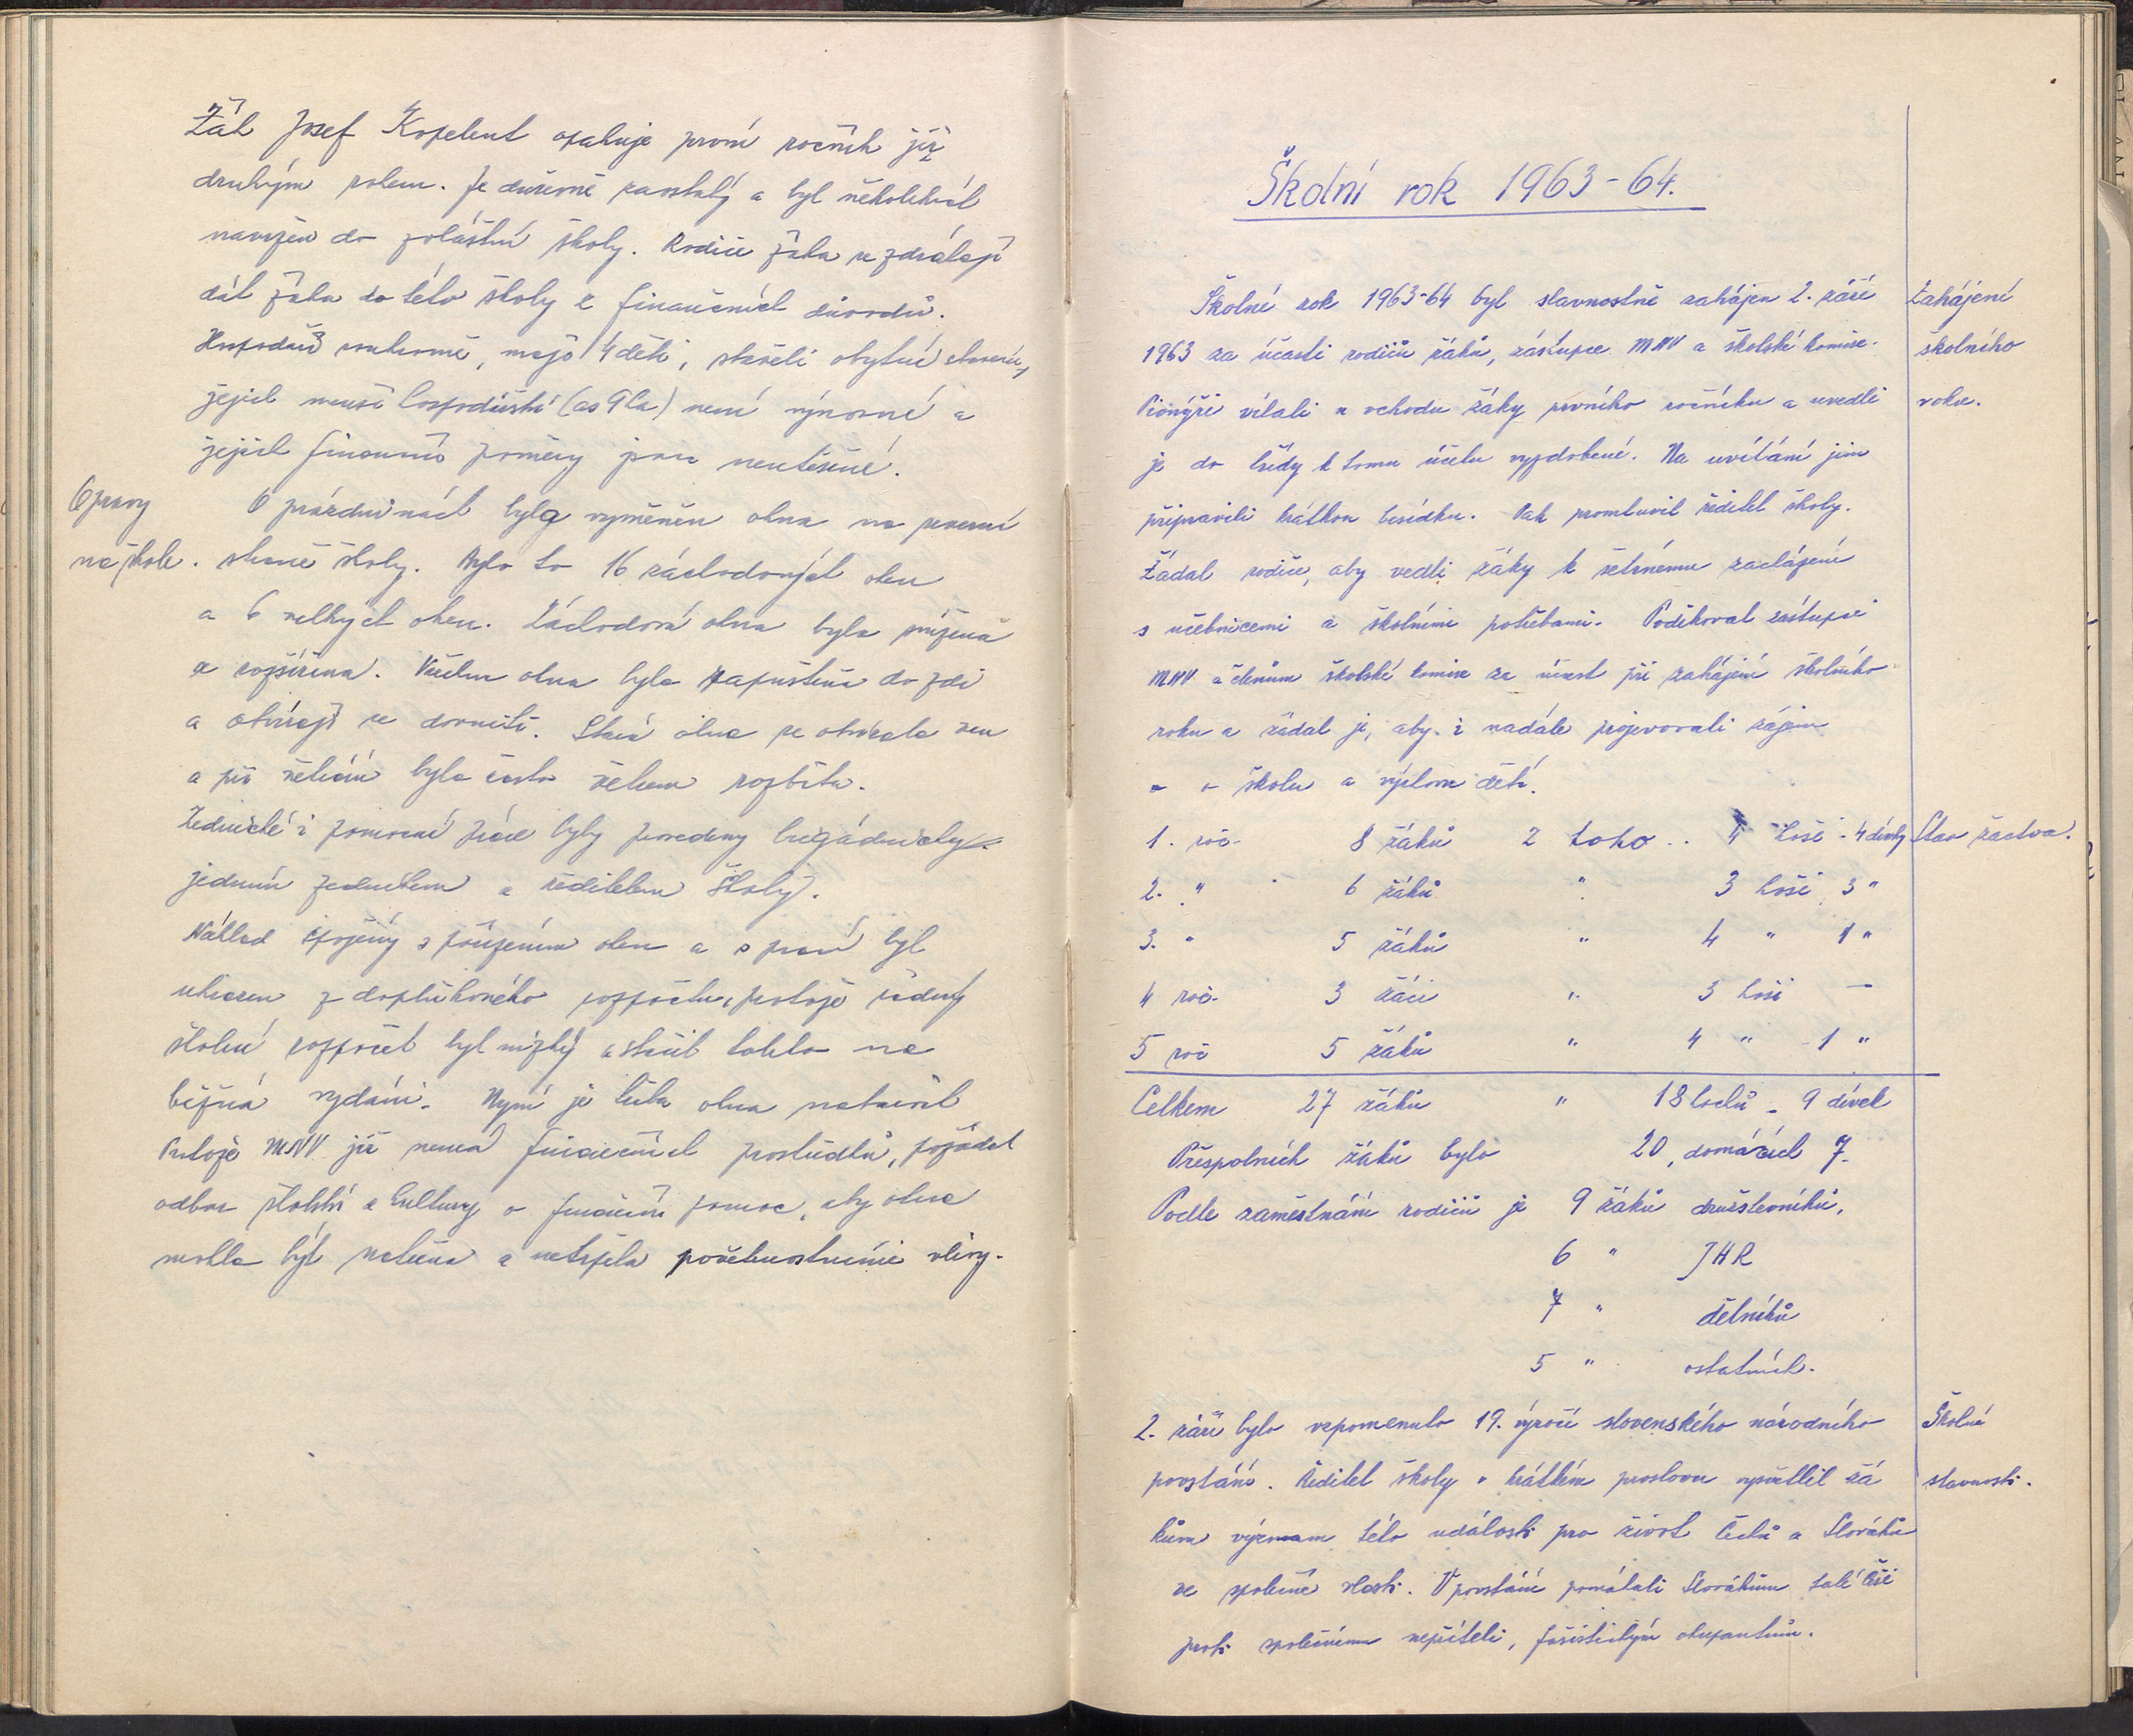 Žák Josef Kopelent opakuje první ročník již
druhým rokem. Je duševně zaostalý a byl několikrát
navržen do zvláštní školy. Rodiče žáka se zdráhají
dát žáka do této školy z finančních důvodů.
Hospodaří soukromě, mají 4 děti, stavěli obytné stavení,
jejich menší hospodářství (as 9 ha) není výnosné a
jejich finanční poměry jsou neutěšené.
Opravy
na škole.
O prázdninách byla vyměněn okna na severní
straně školy. Bylo to 16 záchodových oken
a 6 velkých oken. Záchodová okna byla snížena
a rozšířena. Všechna okna byla zapuštěna do zdi
a otvírají se dovnitř. Stará okna se otvírala ven
a při větrání byla často větrem rozbita.
Zednické i pomocné práce byly provedeny brigádnicky
jedním zedníkem a ředitelem školy.
Náklad spojený s pořízením oken a s prací byl
uhrazen z doplňkového rozpočtu, protože řádný
školní rozpočet byl nízký a stačil toliko na
běžná vydání. Nyní je třeba okna natřít
Protože MNV již nemá finančních prostředků, požádal
odbor školství a kultury o finanční pomoc, aby okna
mohla být natřena a netrpěla povětrnostními vlivy.
Školní rok 1963-64.
Školní rok 1963-64 byl slavnostně zahájen 2. září
1963 za účasti rodičů žáků, zástupce MNV a školské komise.
Pionýři vítali u vchodu žáky prvního ročníku a uvedli
je do třídy k tomu účelu vyzdobené. Na uvítání jim
připravili krátkou besídku. Pak promluvil ředitel školy.
Žádal rodiče, aby vedli žáky k šetrnému zacházení
s učebnicemi a školními potřebami. Poděkoval zástupci
MNV a členům školské komise za účast při zahájení školního
roku a žádal je, aby i nadále projevovali zájem
o školu a výchovu dětí.
Zahájení
školního
roku.
1. roč. 8 žáků z toho .. 4 hoši - 4 dívky
Stav žactva.
2. " 6 žáků " 3 hoši 3 "
3. " 5 žáků " 4 " 1 "
4 roč. 3 žáci " 3 hoši —
5 roč 5 žáků " 4 " - 1 "
Celkem 27 žáků " 18 hochů - 9 dívek
Přespolních žáků bylo 20, domácích 7.
Podle zaměstnání rodičů je 9 žáků družstevníků,
6 " JHR
7 " dělníků
5 " ostatních.
2. září bylo vzpomenuto 19. výročí slovenského národního
povstání. Ředitel školy v krátkém proslovu vysvětlil žá
kům význam této události pro život Čechů a Slováků
ve společné vlasti. V povstání pomáhali Slovákům také Češi
proti společnému nepříteli, fašistickým okupantům.
Školní
slavnosti.